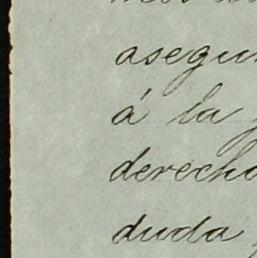 asegu
á la
derecho
duda